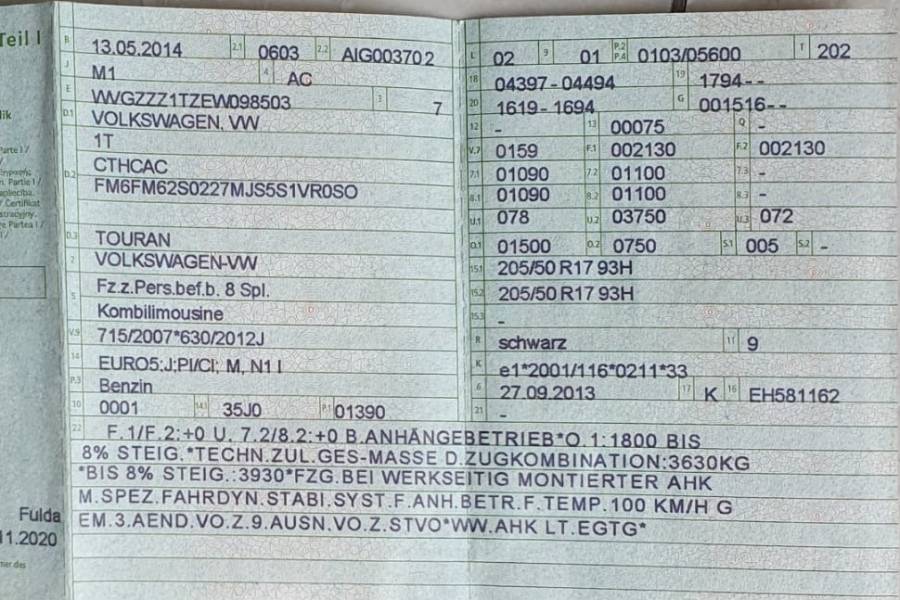 Teil I
B 13.05.2014 2.1 0603 2.2 AIG003702
J M1 4 AC
E WVGZZZ1TZEW098503 3 7
D.1 VOLKSWAGEN, VW
1T
D.2 CTHCAC
FM6FM62S0227MJS5S1VR0SO
D.3 TOURAN
2 VOLKSWAGEN-VW
5 Fz.z.Pers.bef.b. 8 Spl.
Kombilimousine
V.9 715/2007*630/2012J
14 EURO5;J;PI/CI; M, N1 I
P.3 Benzin
10 0001 14.1 35J0 P.1 01390
L 02 9 01 P.2 P.4 0103/05600 T 202
18 04397-04494 19 1794--
20 1619-1694 G 001516--
12 - 13 00075 Q -
V.7 0159 F.1 002130 F.2 002130
7.1 01090 7.2 01100 7.3 -
8.1 01090 8.2 01100 8.3 -
U.1 078 U.2 03750 U.3 072
O.1 01500 O.2 0750 S.1 005 S.2 -
15.1 205/50 R17 93H
15.2 205/50 R17 93H
15.3 -
R schwarz 11 9
K e1*2001/116*0211*33
6 27.09.2013 17 K 16 EH581162
21 -
22 F.1/F.2:+0 U. 7.2/8.2:+0 B.ANHÄNGEBETRIEB*O.1:1800 BIS
8% STEIG.*TECHN.ZUL.GES-MASSE D.ZUGKOMBINATION:3630KG
*BIS 8% STEIG.:3930*FZG.BEI WERKSEITIG MONTIERTER AHK
M.SPEZ.FAHRDYN.STABI.SYST.F.ANH.BETR.F.TEMP.100 KM/H G
EM.3.AEND.VO.Z.9.AUSN.VO.Z.STVO*WW.AHK LT.EGTG*
Fulda
11.2020